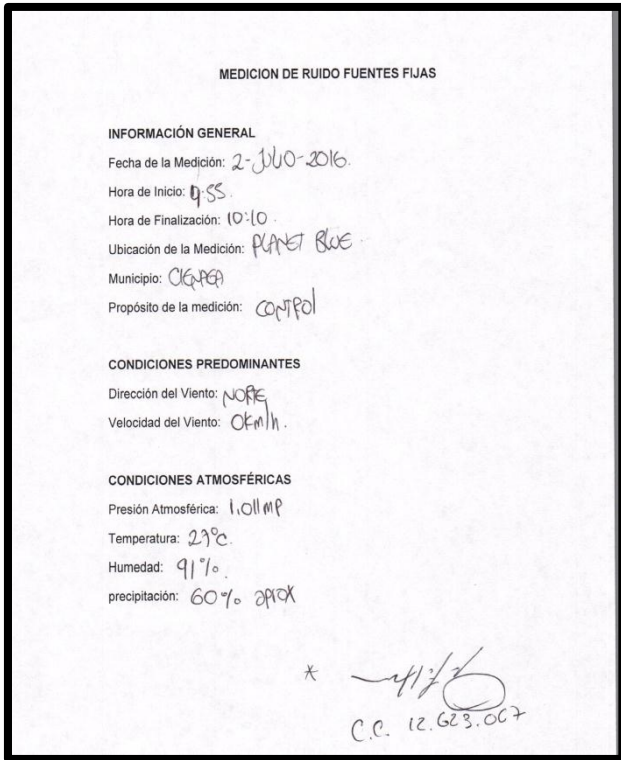 MEDICION DE RUIDO FUENTES FIJAS
INFORMACIÓN GENERAL
Fecha de la Medición: 2-JULIO-2016.
Hora de Inicio: 9:55.
Hora de Finalización: 10:10.
Ubicación de la Medición: PLANET BLUE
Municipio: CIENAGA
Propósito de la medición: CONTROl
CONDICIONES PREDOMINANTES
Dirección del Viento: NORTE
Velocidad del Viento: 0Km/h.
CONDICIONES ATMOSFÉRICAS
Presión Atmosférica: 1,011 MP
Temperatura: 27°C.
Humedad: 91%.
precipitación: 60% aprox
*
C.C. 12.623.067